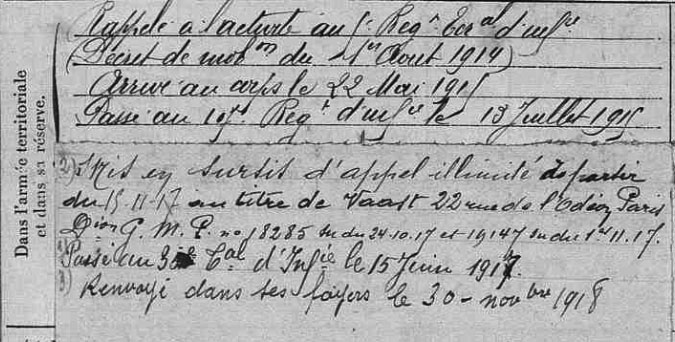 Dans l'armée territoriale
et dans sa réserve.
Rappelé à l'activité au Régt Ter.al d'infie
(Décret de mobon du 1er Août 1914)
Arrivé au corps le 22 Mai 1915
Passé au Régt d'infie le 13 Juillet 1915
2) Mis en sursis d'appel illimité à partir
du 15-11-17 au titre de Vaast 22 rue de l'Odéon Paris
Dion G. M. P. no 18285 du 24.10.17 et 19147 du 1er 11.17.
1) Passé au Tal d'Infie le 15 Juin 1917.
3) Renvoyé dans ses foyers le 30 - novbre 1918